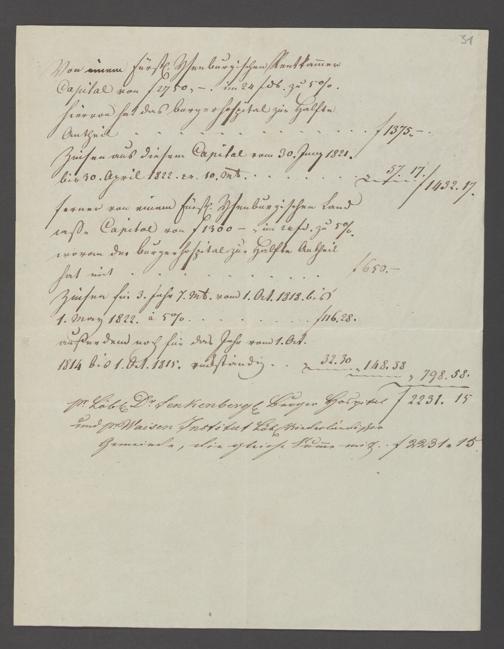 31
Von einem Fürstl. Ysenburgischen Rentkammer
Capital von f 2750,– im 24 f. zu 5%.
hiervon hat das Burgerhospital zur Hälfte
Antheil . . . . . . . . . . f 1375.–
Zinsen aus diesem Capital vom 30. Juny 1821.
bis 30. April 1822. 10. Mt. . . . . . . 57. 17. / 1432. 17.
ferner von einem Fürstl. Ysenburgischen Land
Capital von f 1300 – im 24 f. zu 5%.
wovon das burgerhospital zur Hälfte Antheil
hat mit . . . . . . . . . f 650.–
Zinsen für 3. Jahr 7. Mt. vom 1. Oct. 1818. bis
1. May 1822. à 5% . . . . . . f 116. 28.
ausserdem noch für das Jahr vom 1. Oct.
1814 bis 1. Oct. 1815. rückständig . . 32. 30 148. 58
798. 58.
pr. Löbl. Dr. Senkenbergl. Burger Hospital f 2231. 15
und pr. Waisen Institut Löbl. Niederländischer
Gemeinde, die gleiche Summe mit . f 2231. 15.